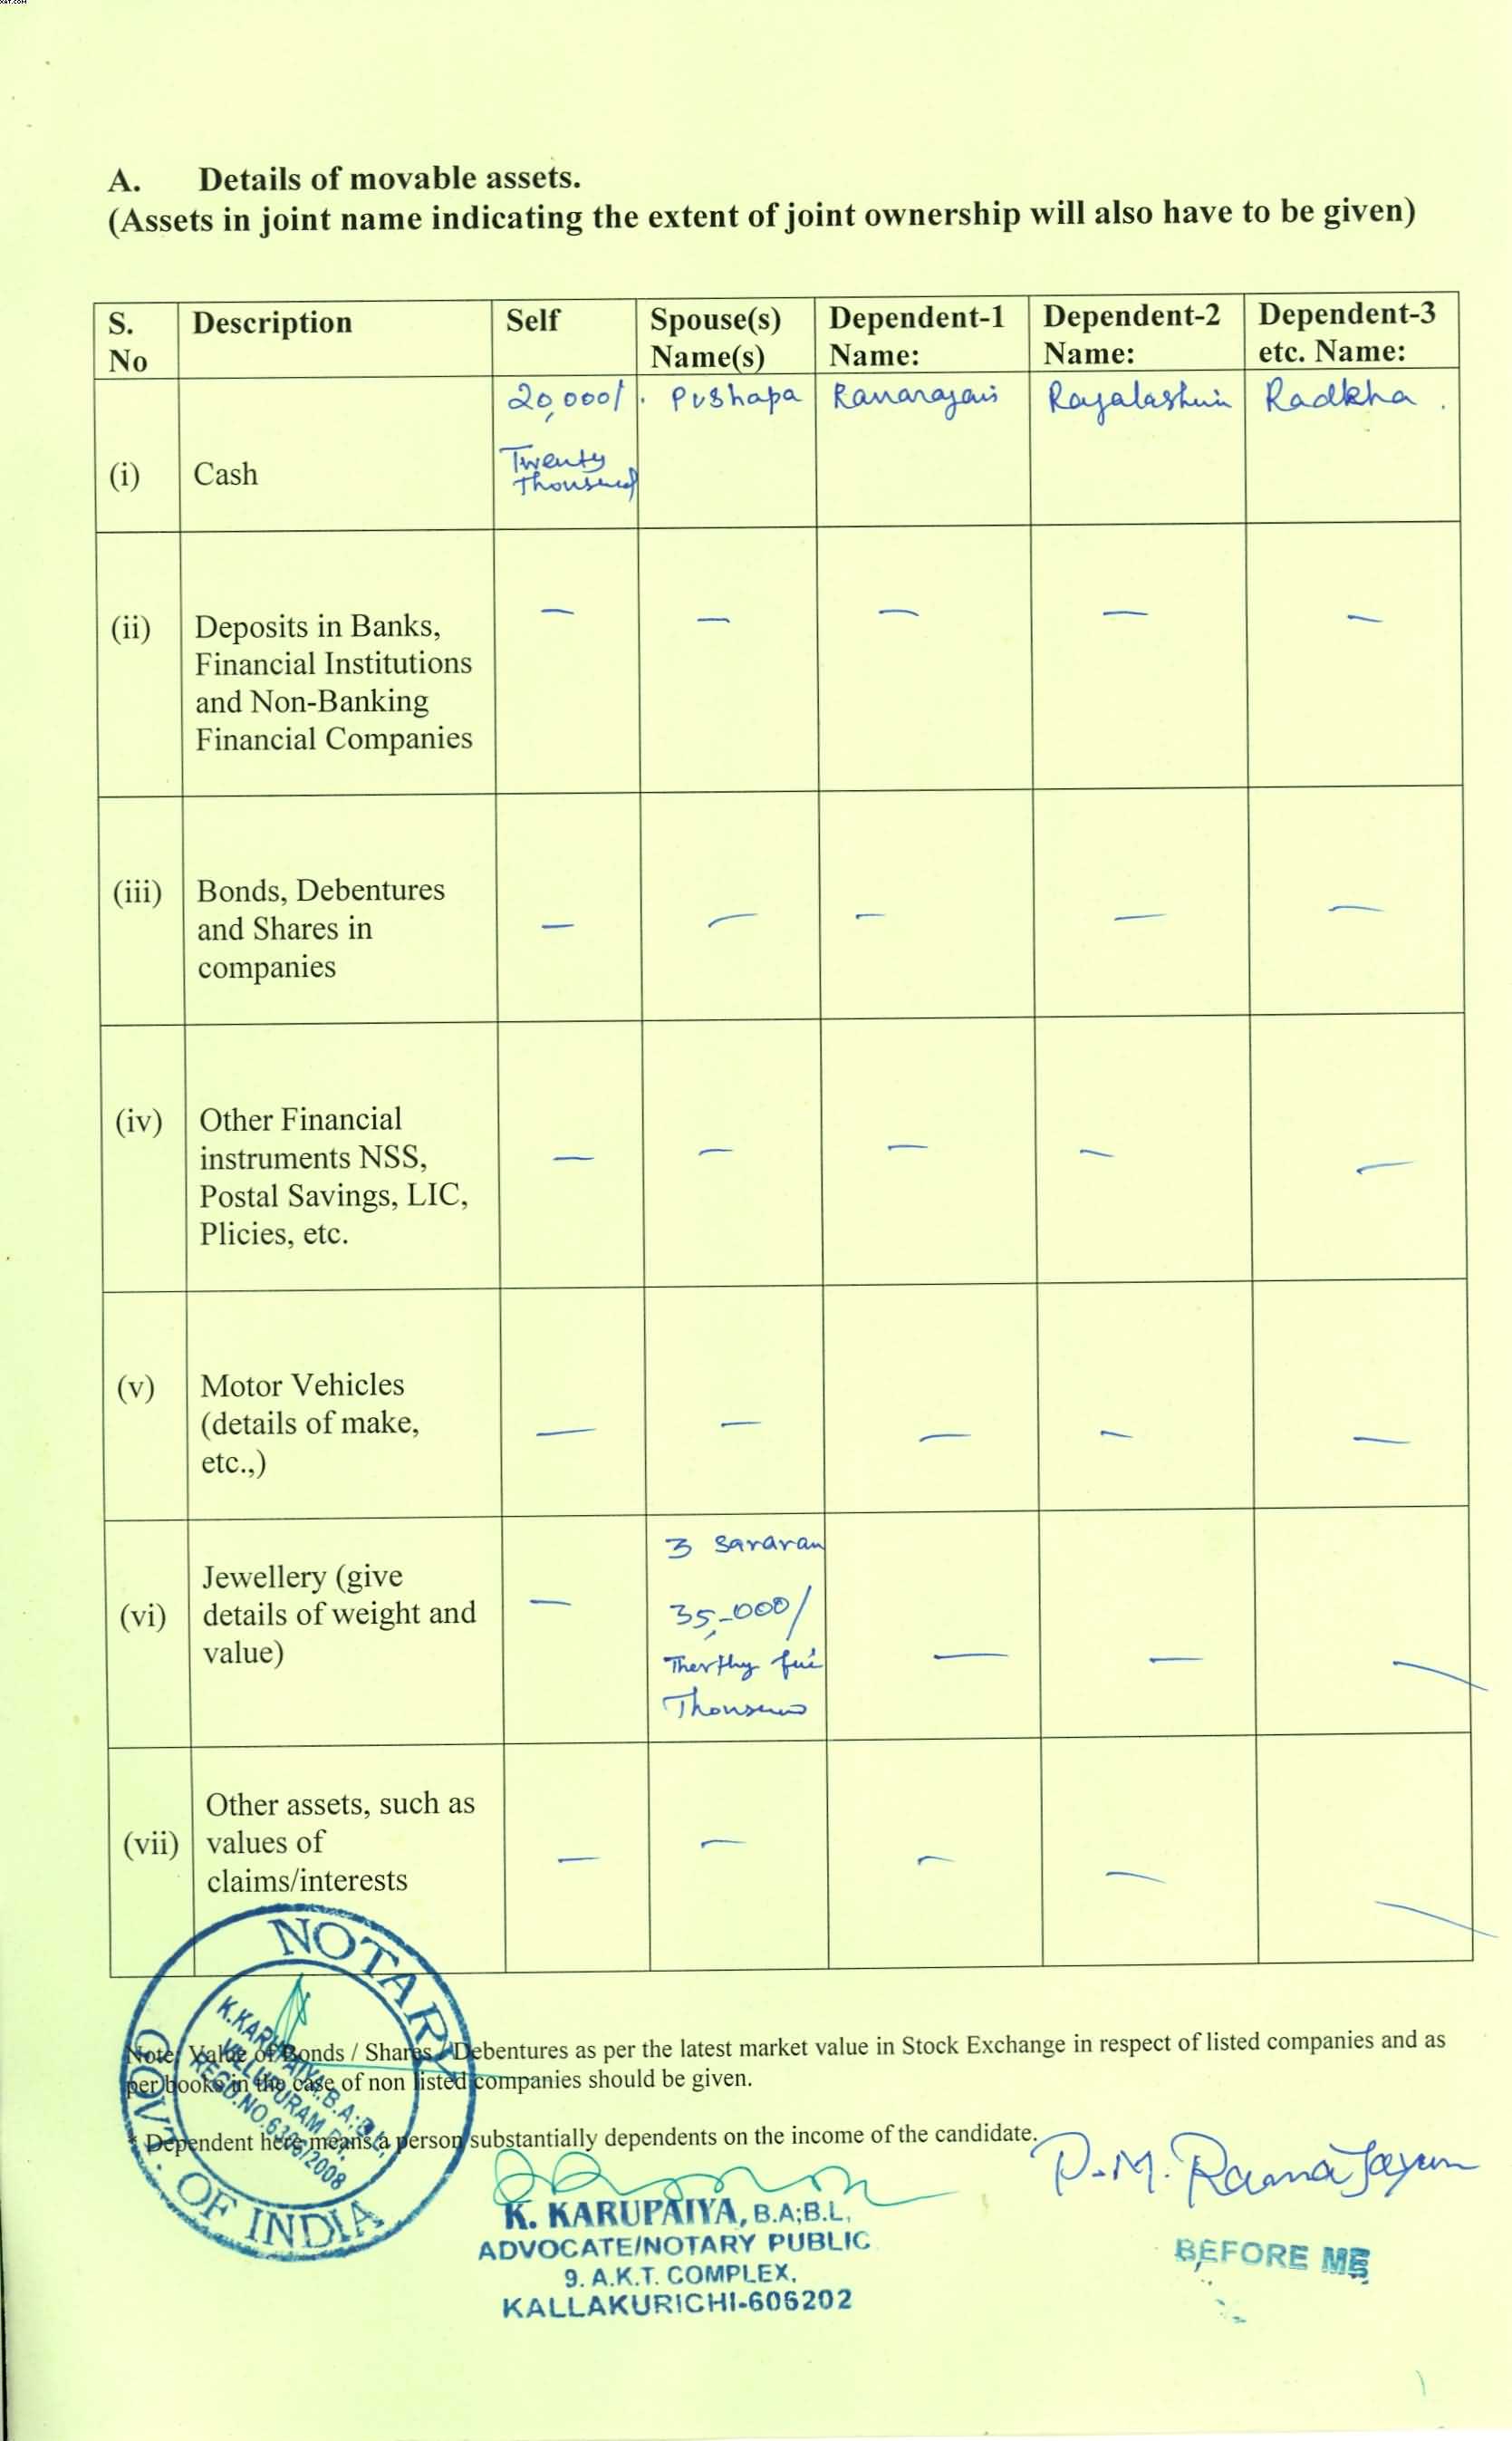 A. Details of movable assets.
(Assets in joint name indicating the extent of joint ownership will also have to be given)
S. No Description Self Spouse(s) Name(s) Dependent-1 Name: Dependent-2 Name: Dependent-3 etc. Name:
20,000/. Pushapa Radkha.
Twenty
Thousand
(i) Cash
(ii) Deposits in Banks, — — — — —
Financial Institutions
and Non-Banking
Financial Companies
(iii) Bonds, Debentures
and Shares in — — — — —
companies
(iv) Other Financial
instruments NSS, — — — — —
Postal Savings, LIC,
Plicies, etc.
(v) Motor Vehicles
(details of make, — — — — —
etc.,)
3 savaran
Jewellery (give
(vi) details of weight and — 35,000/
value) — — —
Thousand
Other assets, such as
(vii) values of — — — — —
claims/interests
Note: Value of Bonds / Shares / Debentures as per the latest market value in Stock Exchange in respect of listed companies and as
per books in the case of non listed companies should be given.
* Dependent here means a person substantially dependents on the income of the candidate.
NOTARY
GOVT. OF INDIA
VILLUPURAM DT.
P.M. Ramajayam
K. KARUPAIYA, B.A;B.L,
ADVOCATE/NOTARY PUBLIC
9. A.K.T. COMPLEX.
KALLAKURICHI-606202
BEFORE ME